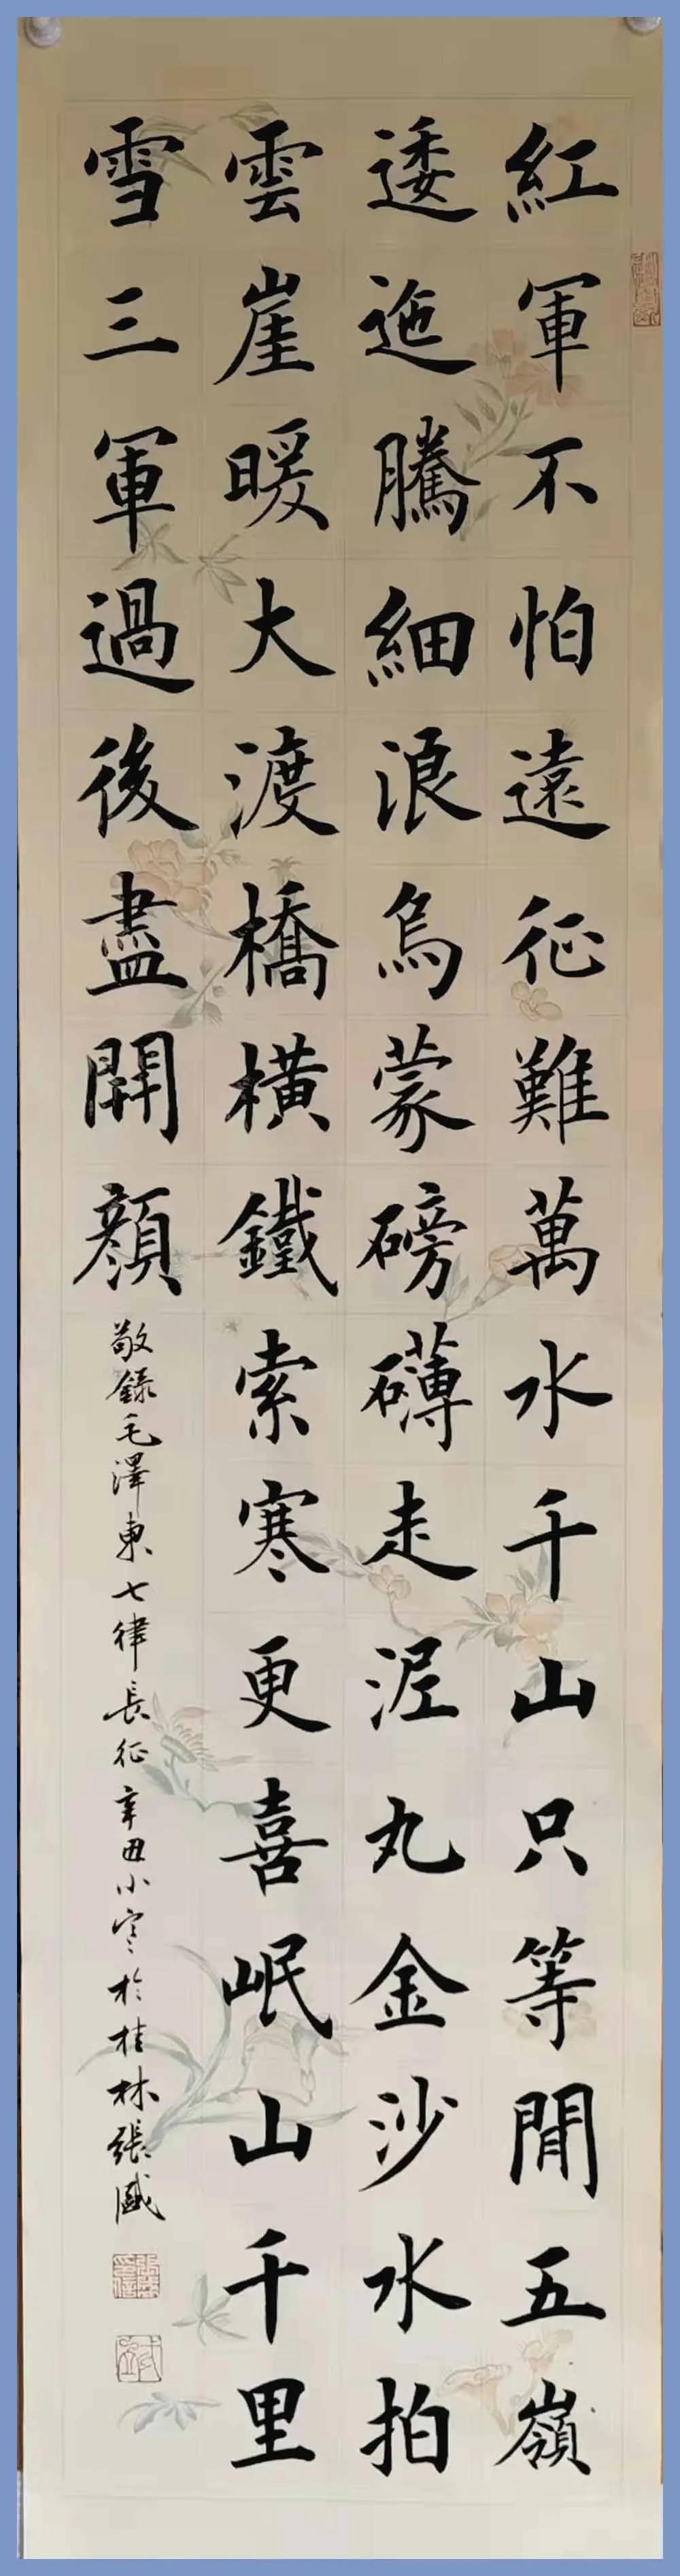 紅軍不怕遠征難萬水千山只等閒五嶺
逶迤騰細浪烏蒙磅礴走泥丸金沙水拍
雲崖暖大渡橋橫鐵索寒更喜岷山千里
雪三軍過後盡開顏
敬錄毛澤東七律長征辛丑小寒於桂林張